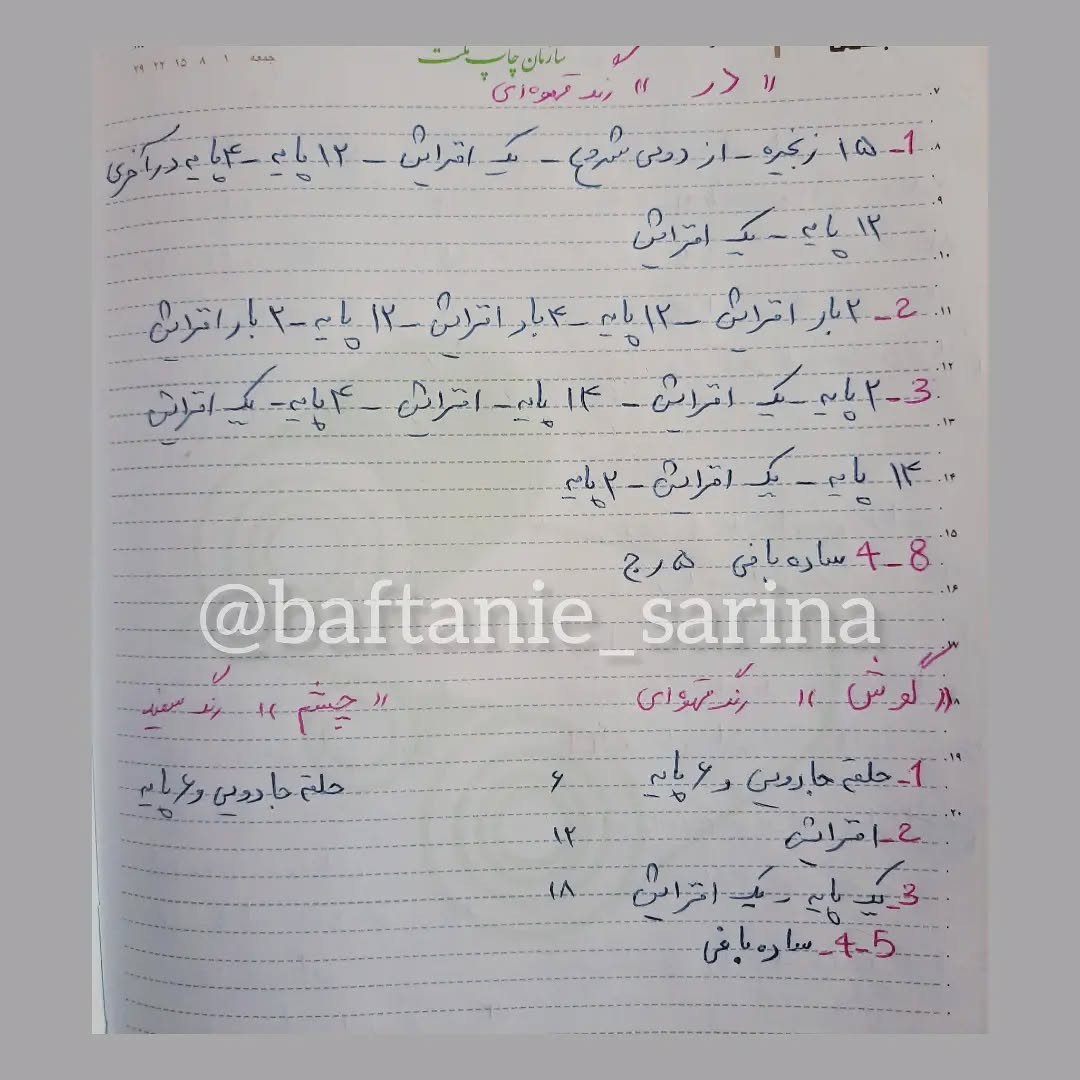 جمعه ۱ ۸ ۱۵ ۲۲ ۲۹
سازمان چاپ ملت
"در" رنگ قهوه‌ای
1_ ۱۵ زنجیره _ از دومی شروع _ یک افزایش _ ۱۲ پایه _ ۴ پایه در آخری
۱۲ پایه _ یک افزایش
2_ ۲ بار افزایش _ ۱۲ پایه _ ۴ بار افزایش _ ۱۲ پایه _ ۲ بار افزایش
3_ ۲ پایه _ یک افزایش _ ۱۴ پایه _ افزایش _ ۴ پایه _ یک افزایش
۱۴ پایه _ یک افزایش _ ۲ پایه
4_8 ساده بافی ۵ رج
@baftanie_sarina
"گوش" رنگ قهوه‌ای "چشم" رنگ سفید
1_ حلقه جادویی و ۶ پایه ۶ حلقه جادویی و ۶ پایه
2_ افزایش ۱۲
3_ یک پایه _ یک افزایش ۱۸
4_5_ ساده بافی